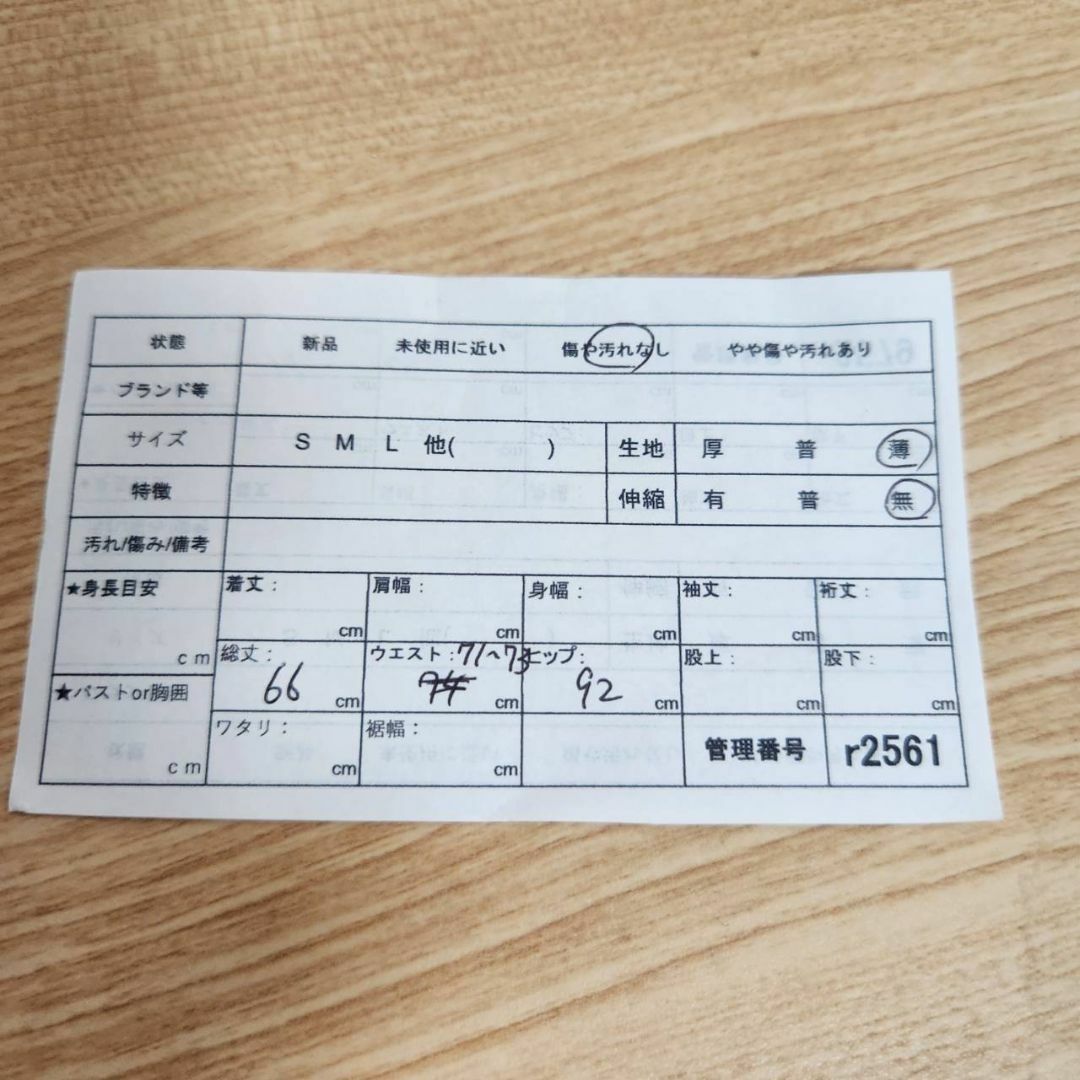 状態 新品 未使用に近い 傷や汚れなし やや傷や汚れあり
ブランド等
サイズ S M L 他( ) 生地 厚 普 薄
特徴 伸縮 有 普 無
汚れ/傷み/備考
★身長目安 cm 着丈: cm 肩幅: cm 身幅: cm 袖丈: cm 裄丈: cm
総丈: 66 cm ウエスト: 71~73 cm ヒップ: 92 cm 股上: cm 股下: cm
★バストor胸囲 cm ワタリ: cm 裾幅: cm 管理番号 r2561